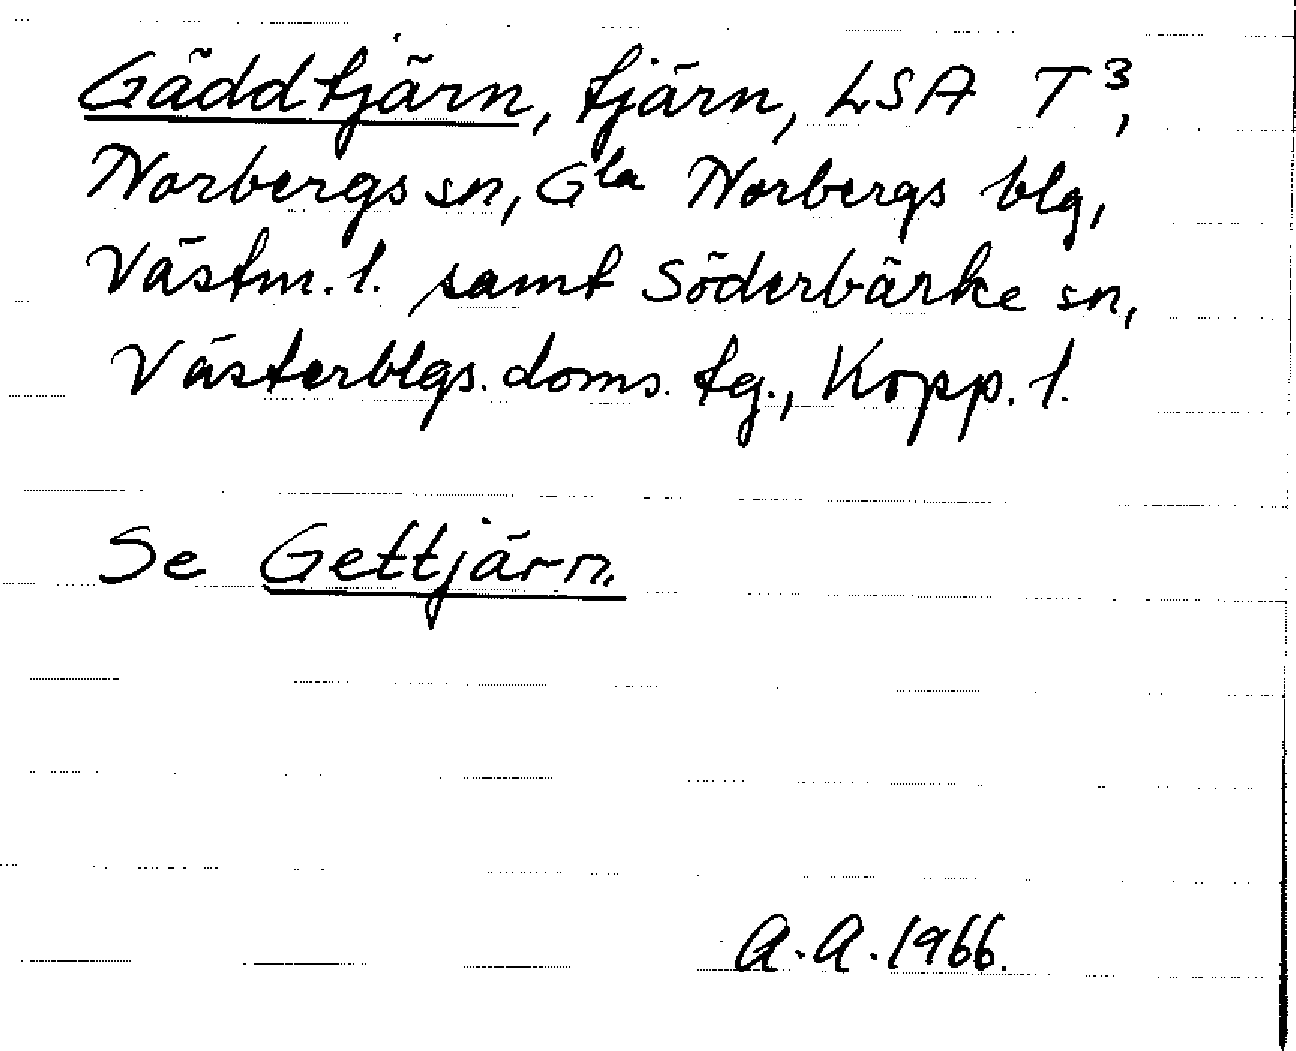 Gäddtjärn, tjärn, LSA T³,
Norbergs sn, Gla Norbergs blg,
Västm. l. samt Söderbärke sn,
Västerblgs. doms. tg., Kopp. l.
Se Gettjärn.
A.A. 1966.